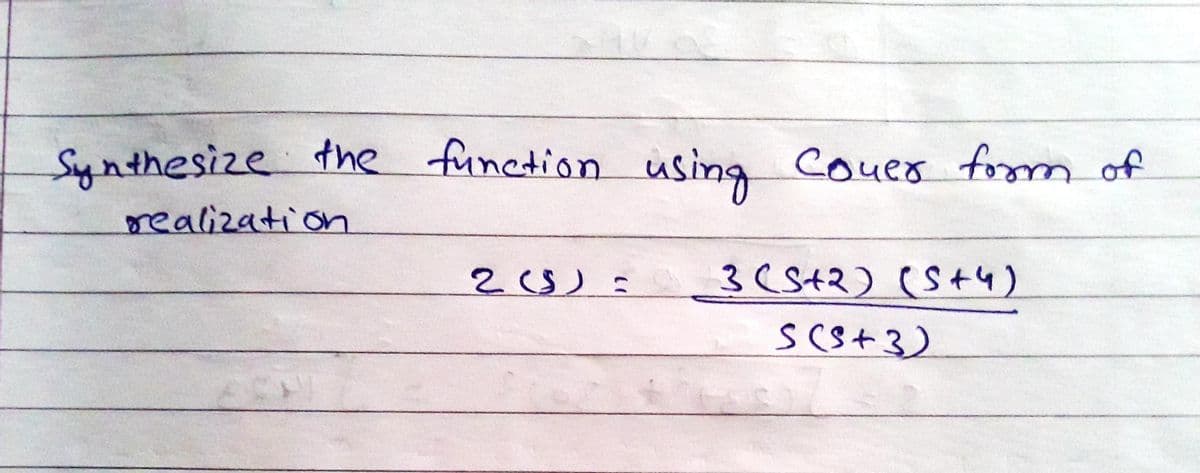 Synthesize the function using Couer form of
realization
Z(S) = 3(S+2) (S+4)
S(S+3)